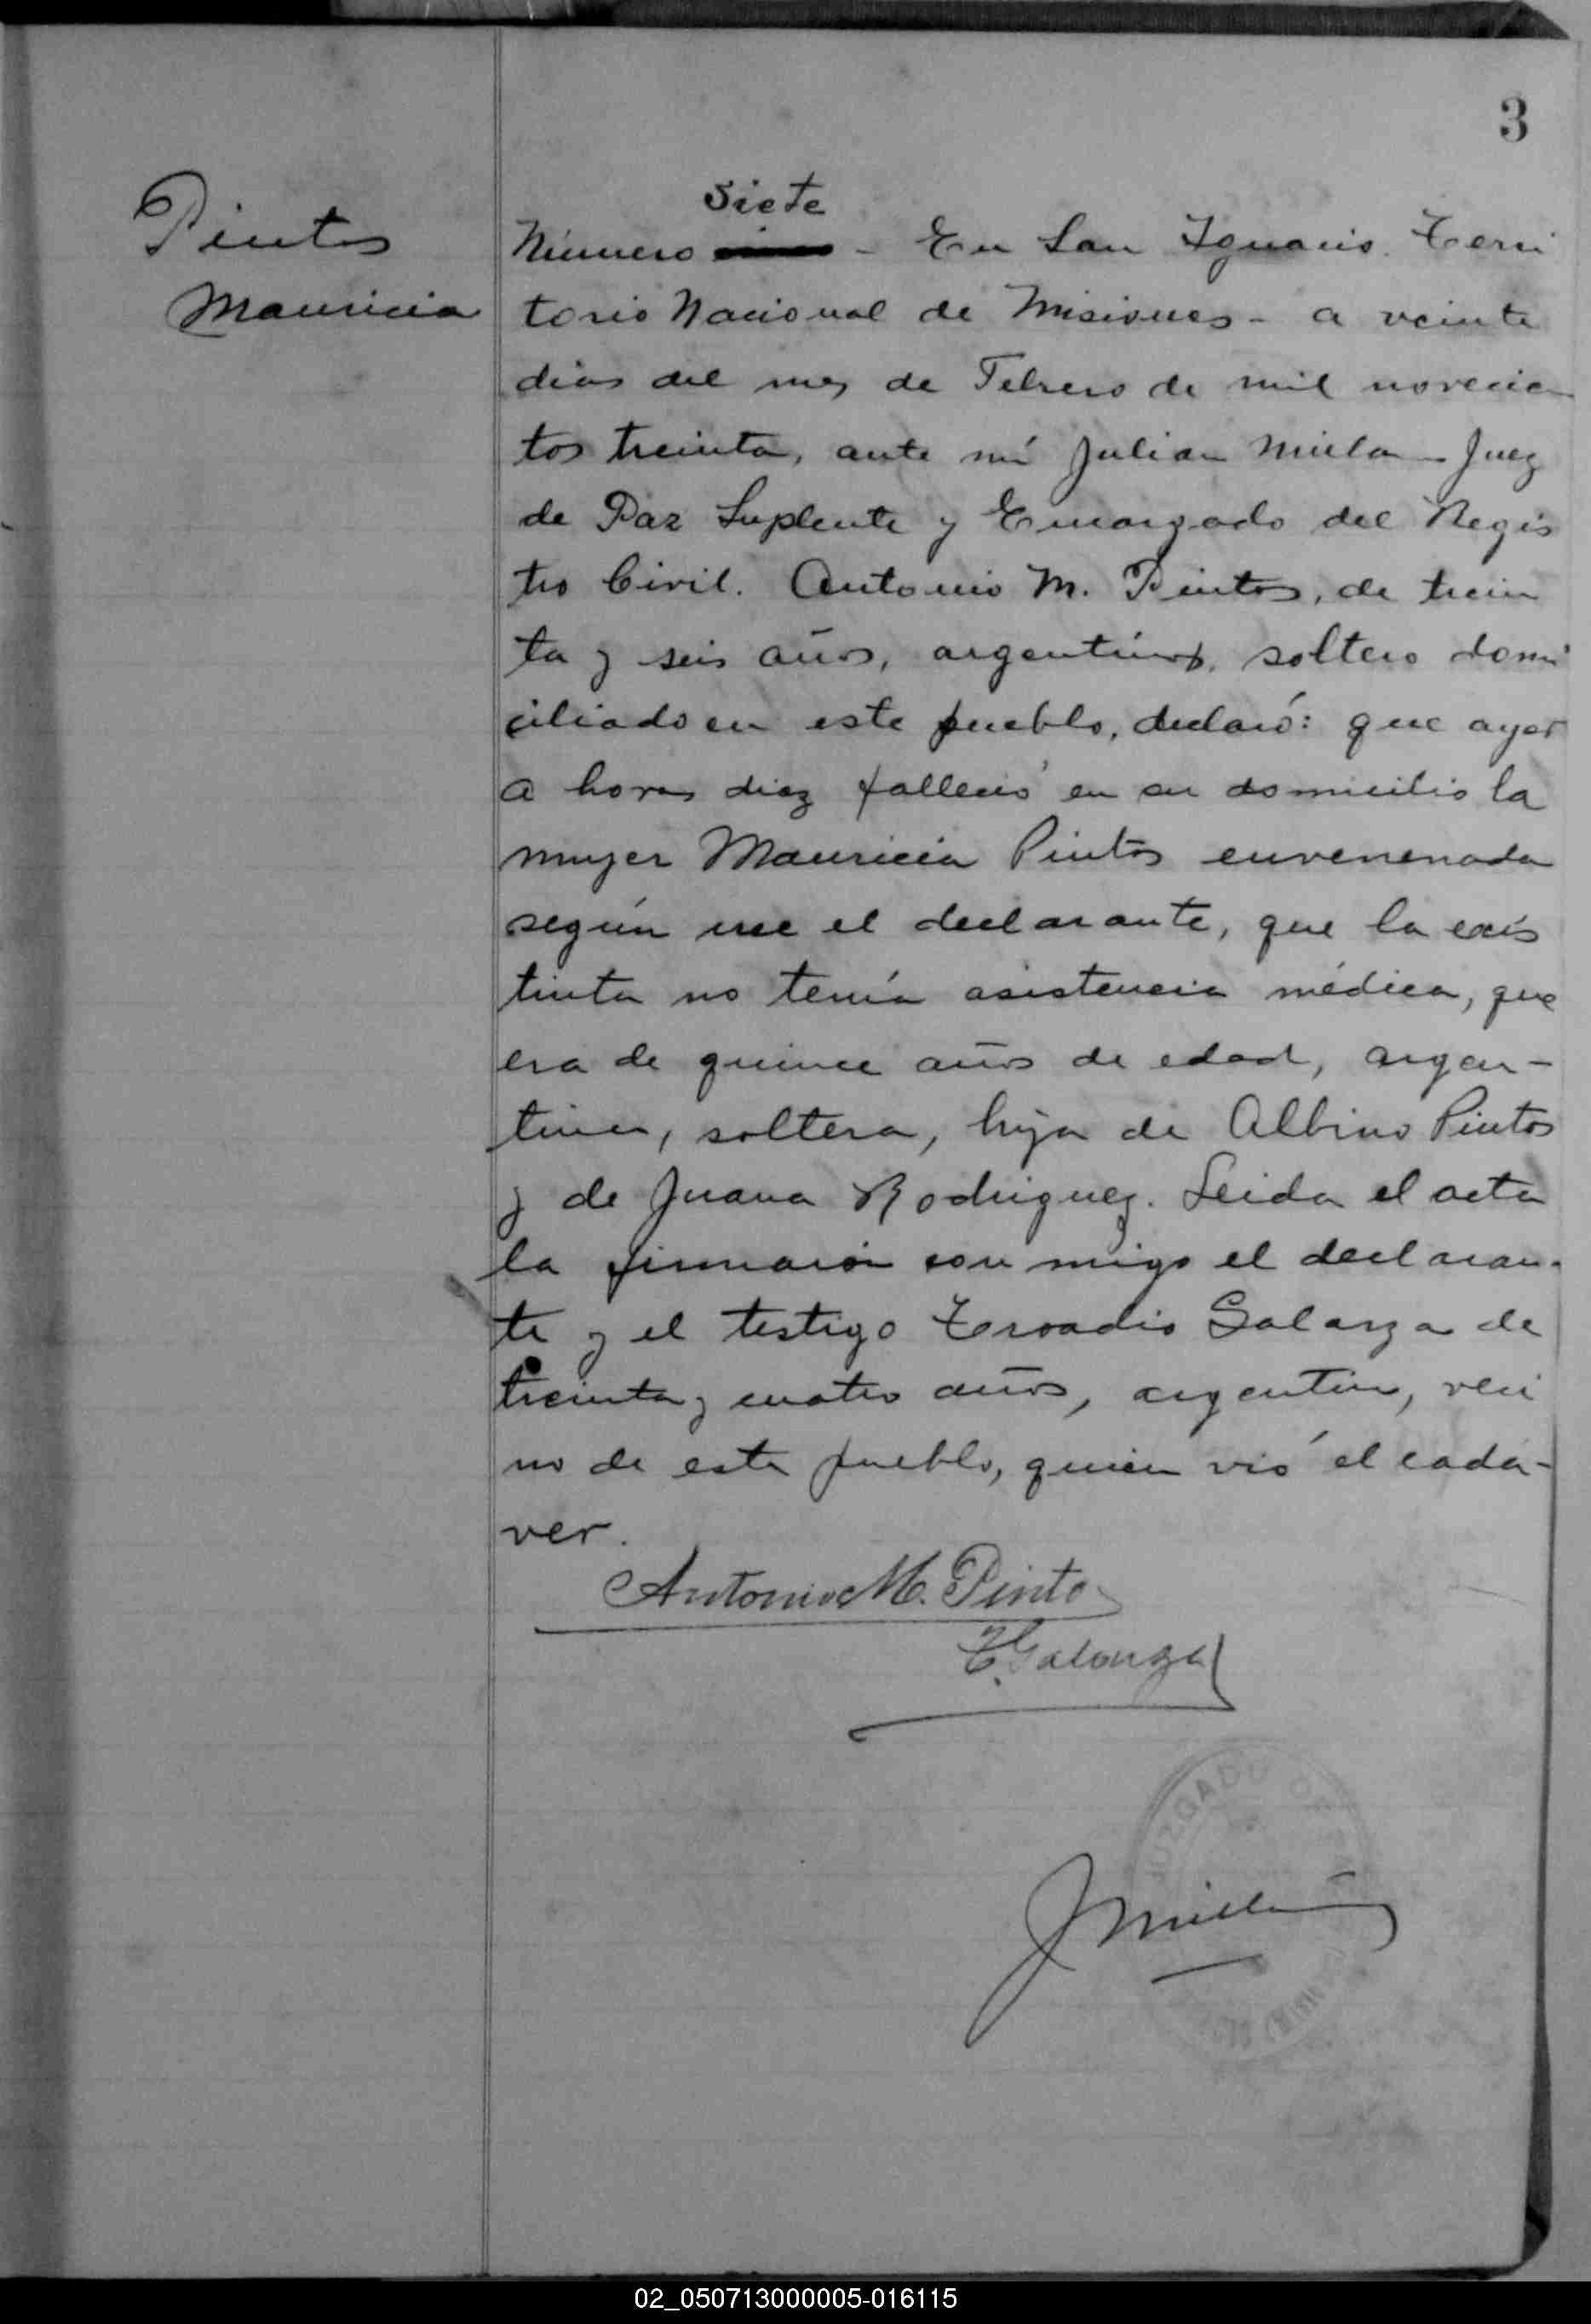 3
Pintos
Mauricia
siete
Número - En San Ignacio. Terri
torio Nacional de Misiones - a veinte
dias del mes de Febrero de mil novecien
tos treinta, ante mí Julian Milla - Juez
de Paz Suplente y Encargado del Regis
tro Civil. Antonio M. Pintos, de trein
ta y seis años, argentino, soltero domi
ciliado en este pueblo, declaró: que ayer
a horas diez falleció en su domicilio la
mujer Mauricia Pintos envenenada
según cree el declarante, que la exis
tinta no tenía asistencia médica, que
era de quince años de edad, argen-
tina, soltera, hija de Albino Pintos
y de Juana Rodriguez. Leida el acta
la firmaron con migo el declaran-
te y el testigo Teroadio Galarza de
treinta y cuatro años, argentino, veci
no de este pueblo, quien vió el cadá-
ver.
Antonio M. Pinto
T. Galarza
JUZGADO DE
J Milla
02_050713000005-016115